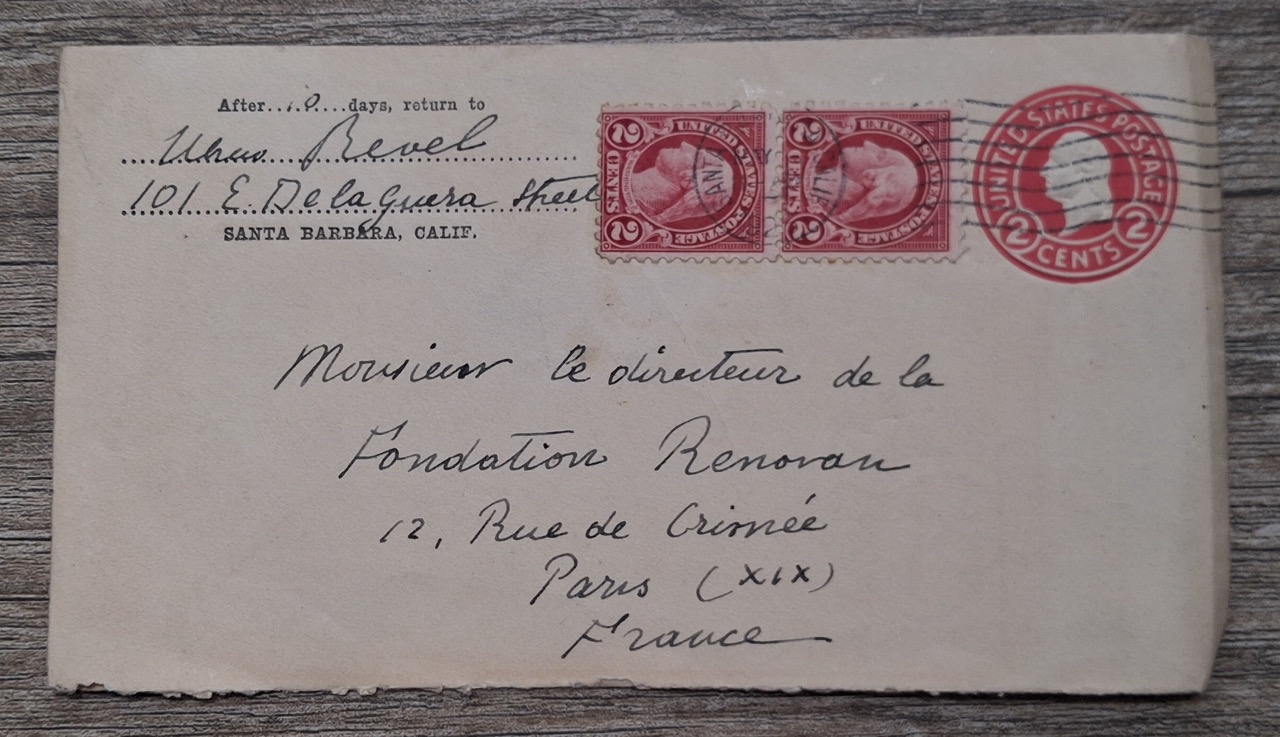 After...10...days, return to
Revel
101 E. De la guera Street
SANTA BARBARA, CALIF.
UNITED STATES POSTAGE
2 CENTS 2
UNITED STATES POSTAGE
2 CENTS 2
UNITED STATES POSTAGE
2 CENTS 2
SANTA
Monsieur le directeur de la
Fondation Renovan
12, Rue de Crimée
Paris (XIX)
France